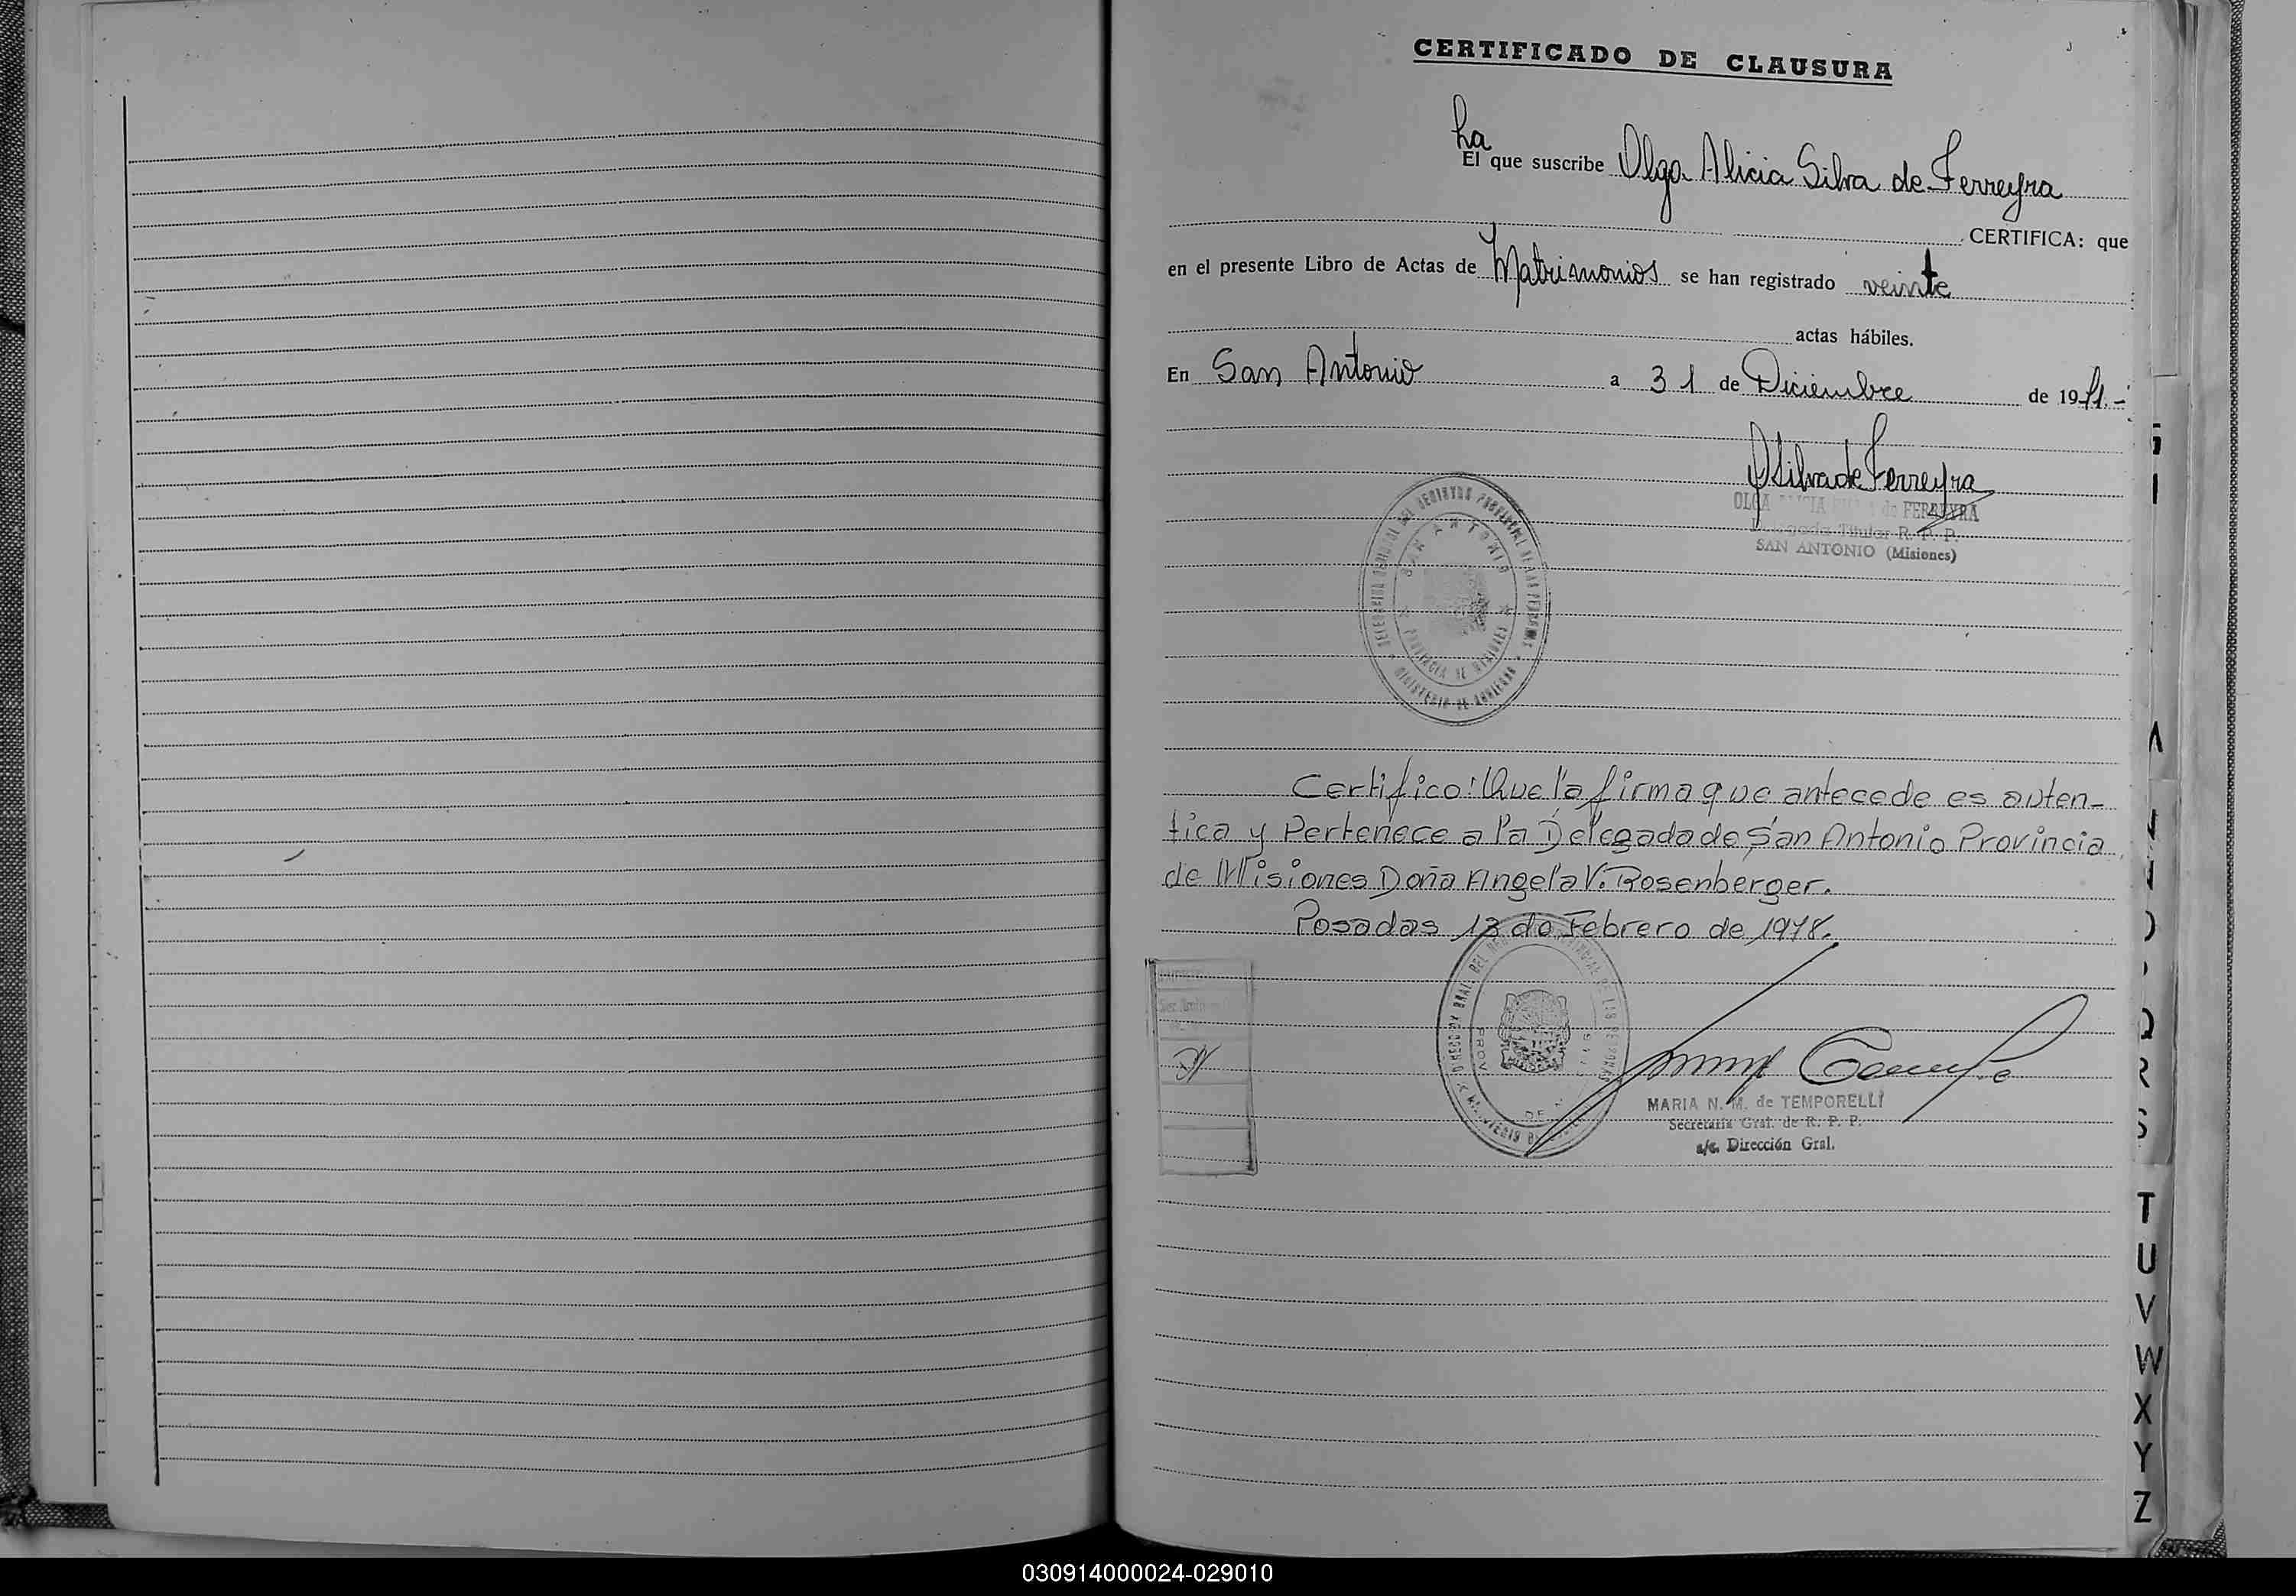 CERTIFICADO DE CLAUSURA
La
El que suscribe Olga Alicia Silva de Ferreyra
CERTIFICA: que
en el presente Libro de Actas de Matrimonios se han registrado veinte
actas hábiles.
En San Antonio a 31 de Diciembre de 1971.-
OSilva de Ferreyra
OLGA ALICIA SILVA de FERREYRA
Delegada Titular R. P. P.
SAN ANTONIO (Misiones)
DELEGACION DEL REGISTRO PROVINCIAL DE LAS PERSONAS
SAN ANTONIO
PROVINCIA DE MISIONES
MINISTERIO DE GOBIERNO
Certifico: Que la firma que antecede es auten-
tica y Pertenece a la Delegada de San Antonio Provincia
de Misiones Doña Angela V. Rosenberger.
Posadas 13 de Febrero de 1978.
MARIA N. M. de TEMPORELLI
Secretaria Gral. de R. P. P.
a/c. Dirección Gral.
G
I
Q
R
S
T
U
V
W
X
Y
Z
030914000024-029010